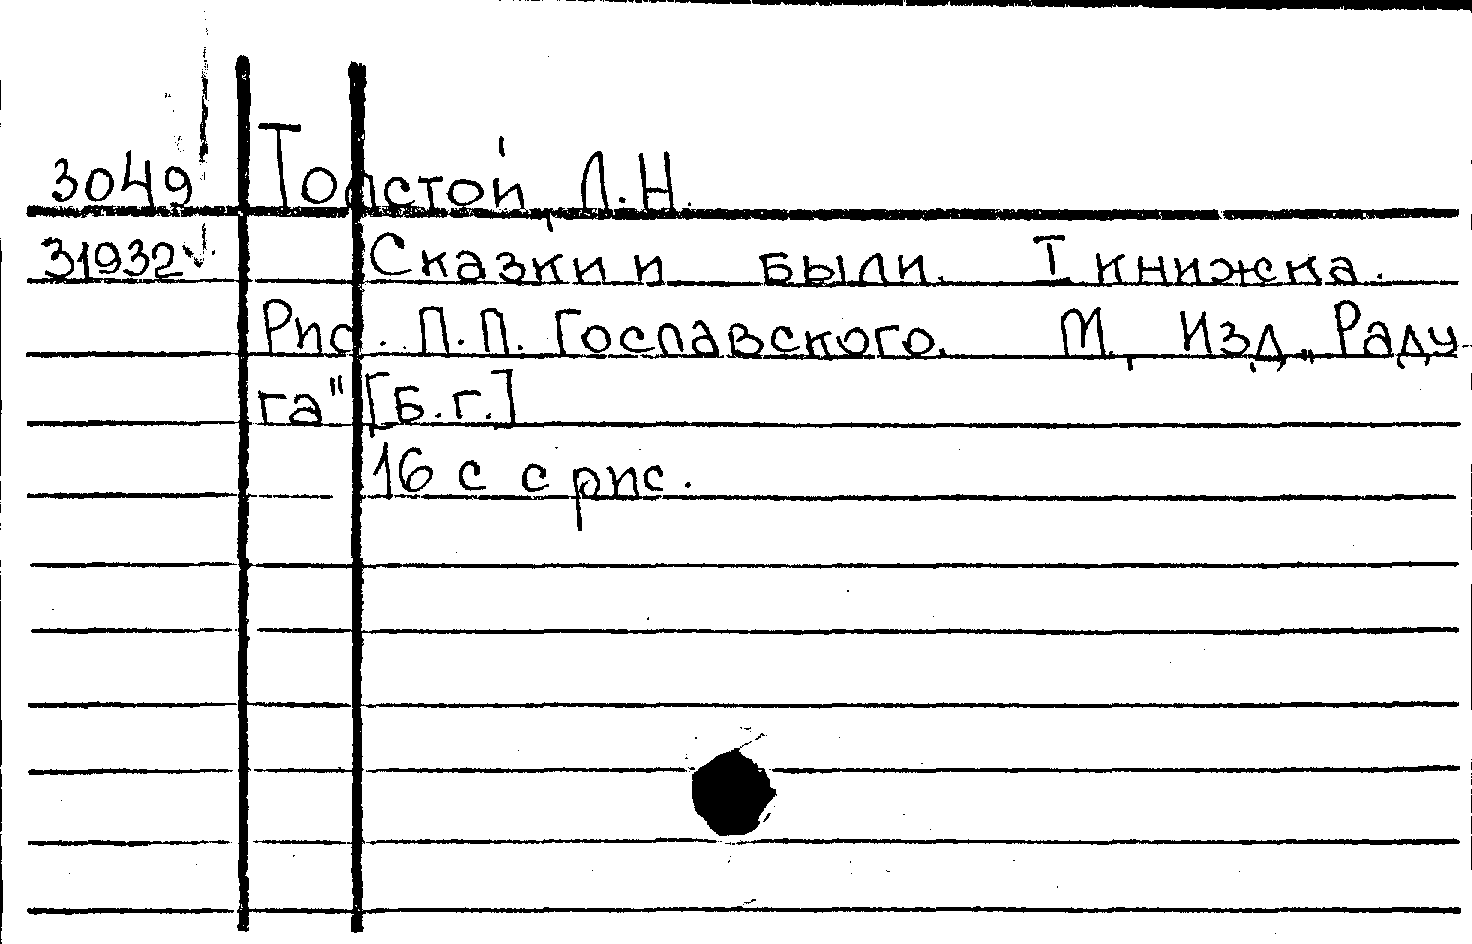 3049 Толстой, Л.Н.
31932 Сказки и были. I книжка.
Рис. П.П. Гославского. М., Изд. „Раду
га" [Б.г.]
16 с с рис.